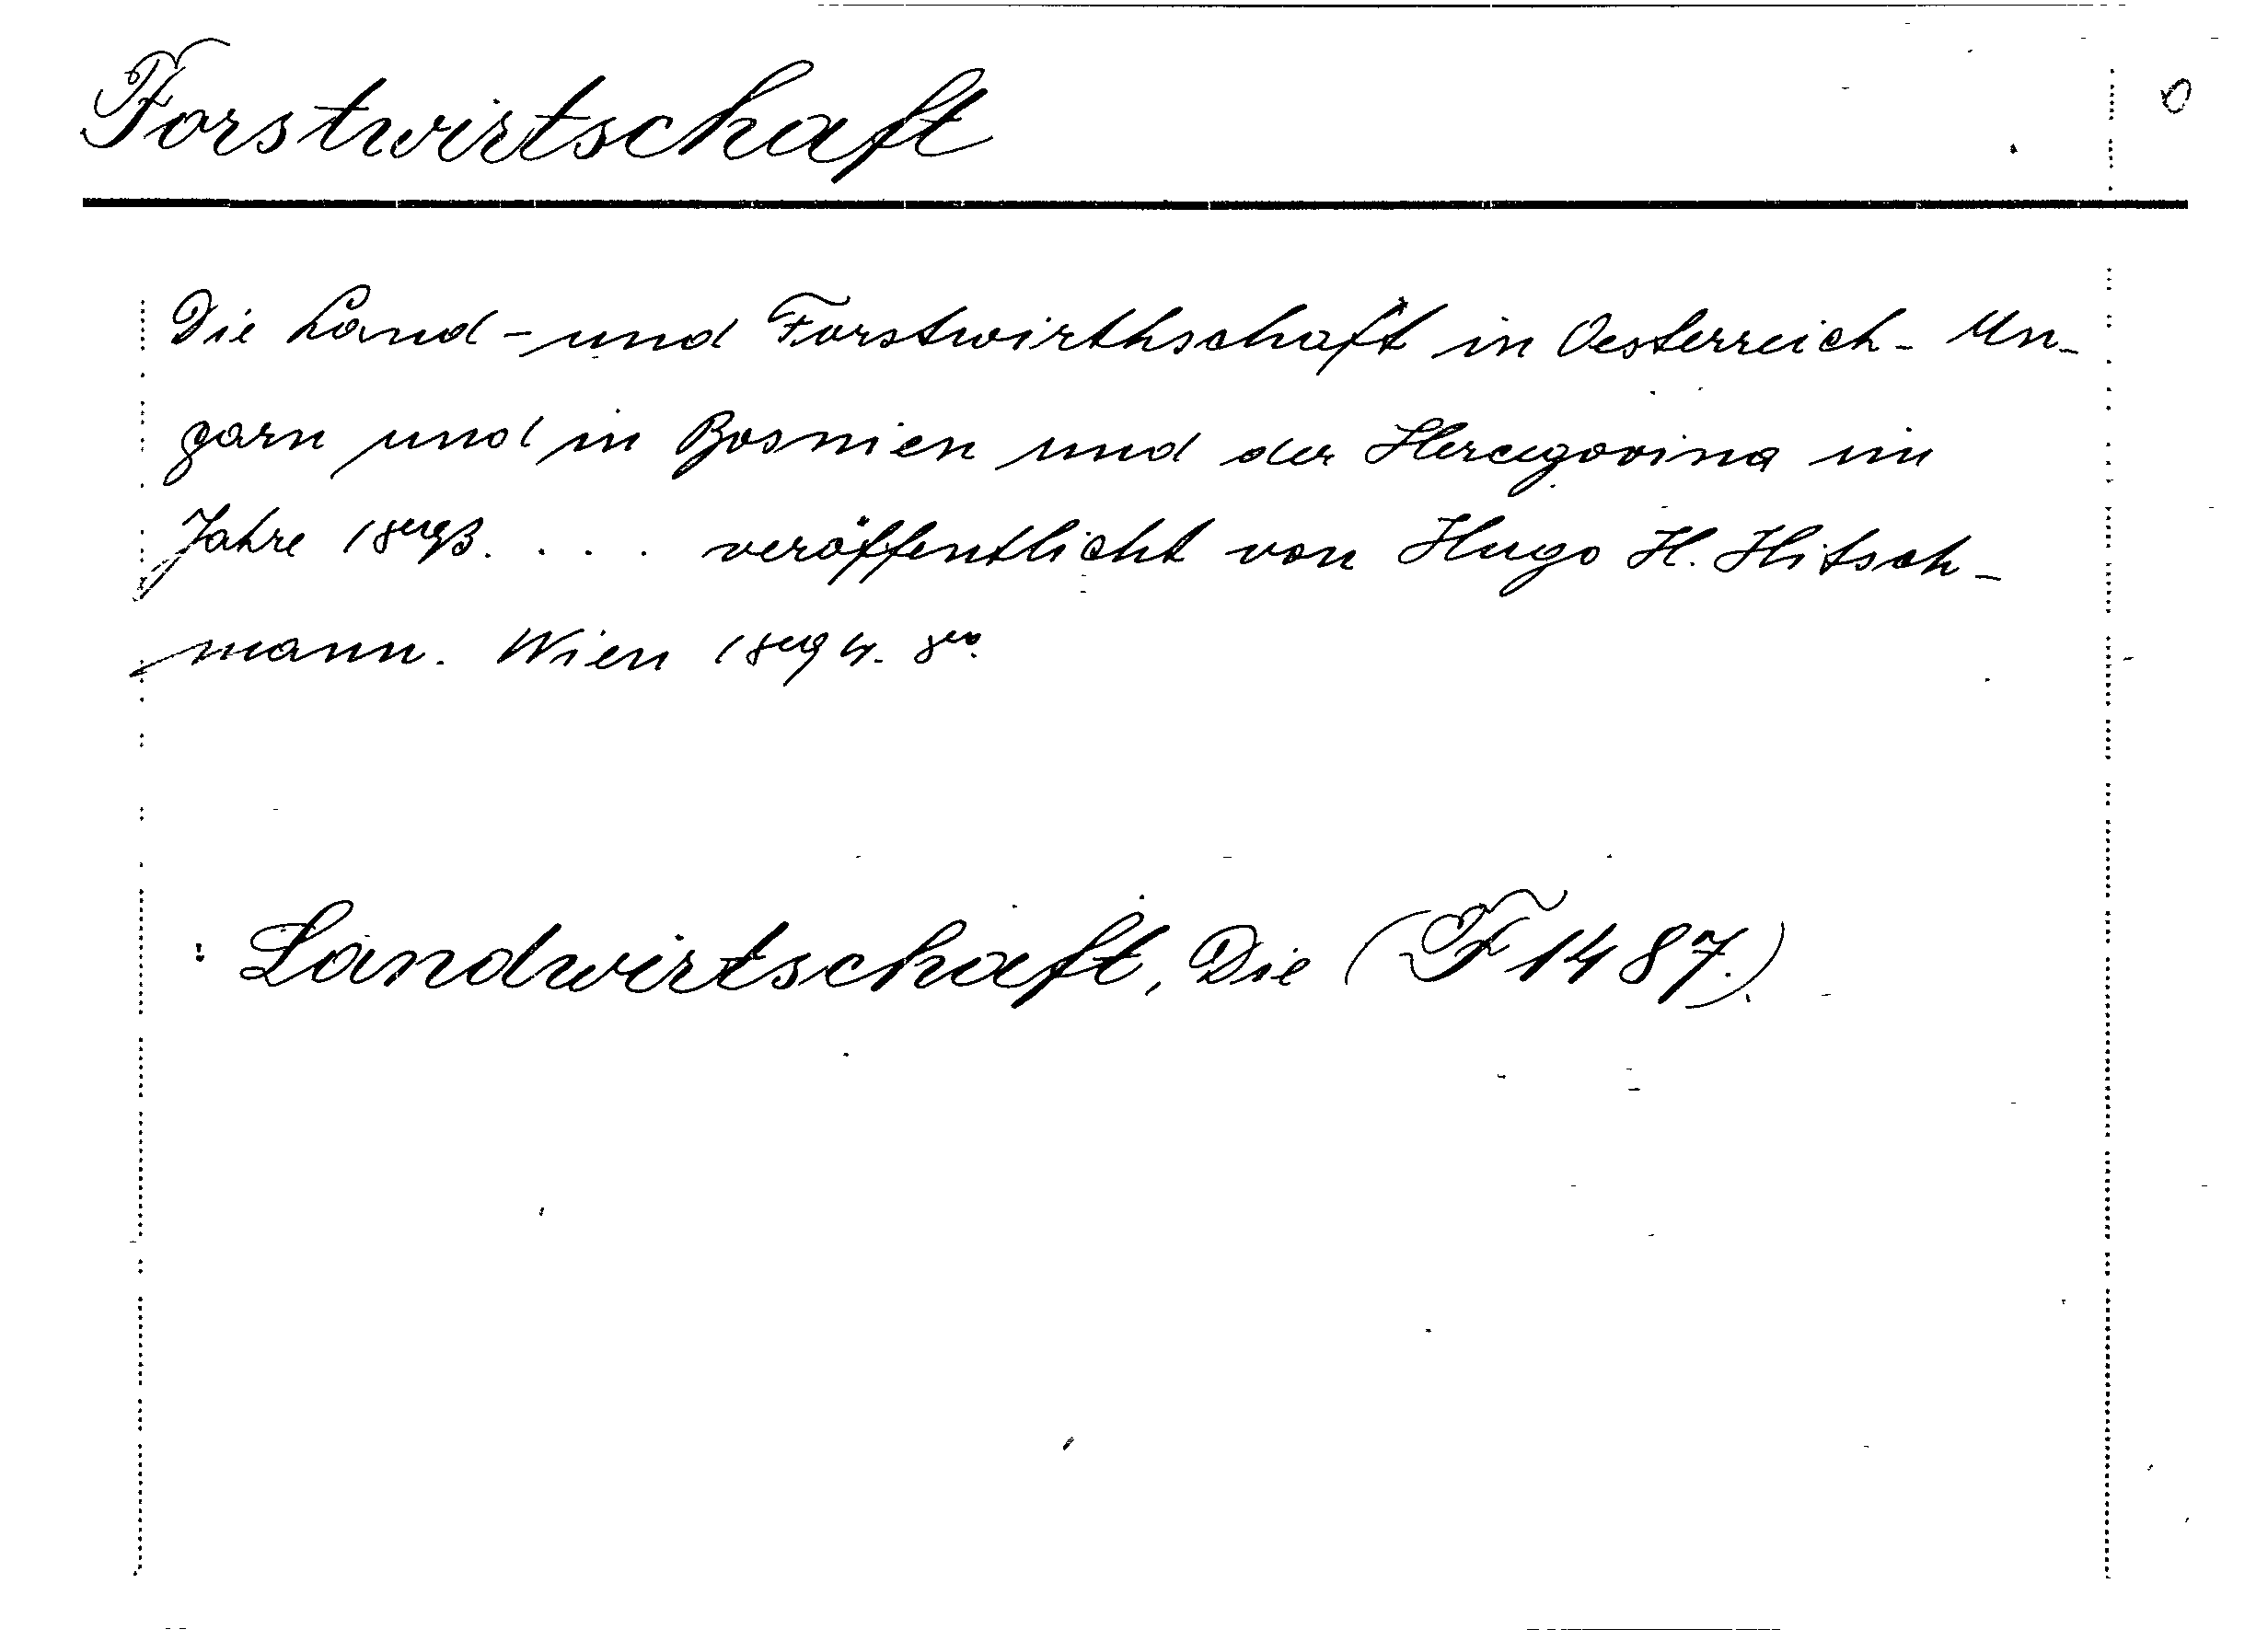 Forstwirtschaft
Die Land - und Forstwirthschaft in Oesterreich - Un-
garn und in Bosnien und der Hercegovina im
Jahre 1893. . . . veröffentlicht von Hugo H. Hitsch-
mann. Wien 1894. 8vo.
: Landwirtschaft, Die (F 1487.)